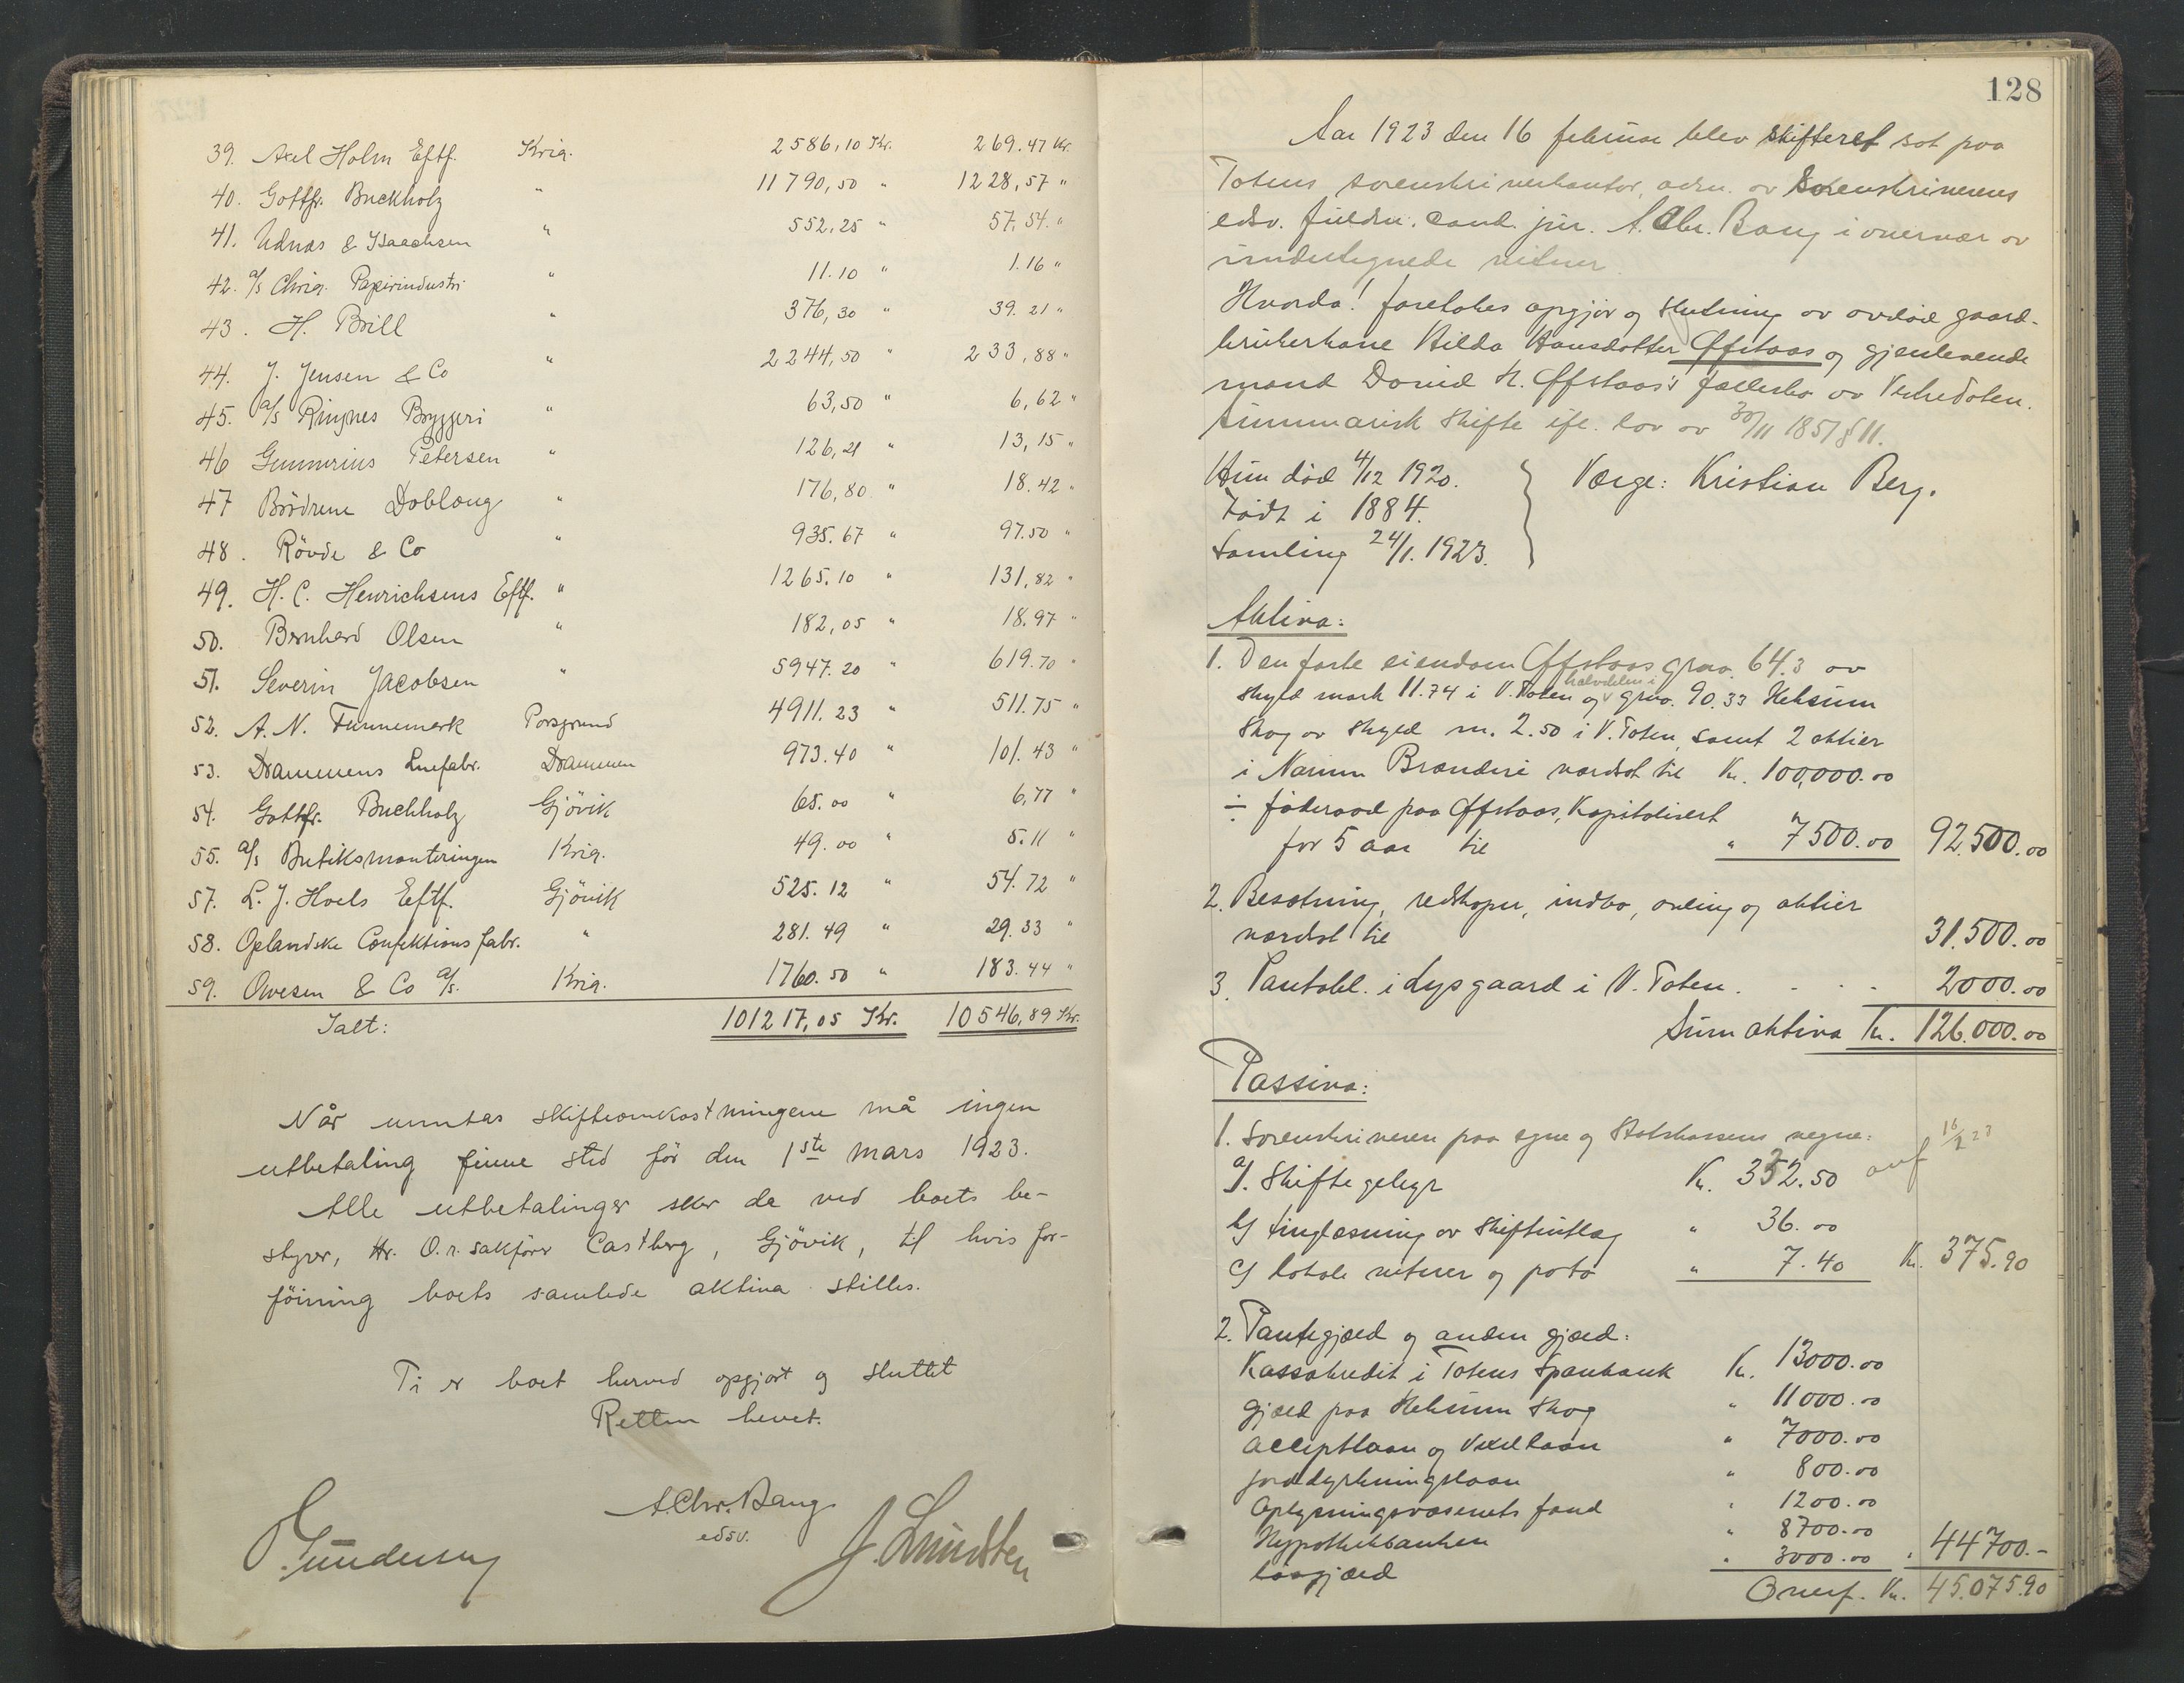 39. Axel Holm Eftf. Kria. 2586,10 Kr. 269.47 Kr.
40. Gottfr. Buckholz " 11790,50 " 1228,57 "
41. Udnæs & Isaachsen " 552,25 " 57,54. "
42. a/s Chria. Papirindustri " 11.10 " 1.16 "
43. H. Brill " 376,30 " 39.21 "
44. J. Jensen & Co " 2244,50 " 233,88 "
45. a/s Ringnes Bryggeri " 63,50 " 6,62 "
46 Gunnerius Petersen " 126,21 " 13,15 "
47 Brödrene Dobloug " 176,80 " 18.42 "
48. Rövde & Co " 935.67 " 97.50 "
49. H. C. Henrichsens Eftf. " 1265.10 " 131,82 "
50. Bernhard Olsen " 182,05 " 18.97 "
51. Severin Jacobsen " 5947.20 " 619.70 "
52. A. N. Funnemark Porsgrund 4911.23 " 511.75 "
53. Drammens Luefabr. Drammen 973.40 " 101.43 "
54. Gottfr. Buchholz Gjövik 65.00 " 6,77 "
55. a/s Butiksmonteringen Kria. 49.00 " 5.11 "
57. L. J. Hoels Eftf. Gjövik 525.12 " 54.72 "
58. Oplandske Confektionsfabr. " 281.49 " 29.33 "
59. Owesen & Co a/s. Kria. 1760.50 " 183.44 "
Ialt: 101217,05 Kr. 10546,89 Kr.
Når unntas skifteomkostningene må ingen
utbetaling finne sted för den 1ste mars 1923.
Alle utbetalinger sker da ved boets be-
styrer, Hr. O.r.sakförer Castberg, Gjövik, til hvis for-
föining boets samlede aktiva stilles.
Ti er boet herved opgjort og sluttet
Retten hevet.
A.Chr.Bang
edsv.
Gundersen
J. Lundsten
128
Aar 1923 den 16 februar blev skifteret sat paa
Totens sorenskriverkontor, adm. av Sorenskriverens
edsv. fuldm. cand. jur. A. Chr. Bang i overvær av
undertegnede vitner.
Hvorda! foretokes opgjør og slutning av avdød gaard-
brukerkone Hilda Hansdatter Øfstaas og gjenlevende
mand David H. Øfstaas's fællesbo av Vestre Toten.
Summarisk skifte ifl. lov av 30/11 1851 § 11.
Hun död 4/12 1920. Værge: Kristian Berg.
Födt i 1884.
Samling 24/1. 1923.
Aktiva:
1. Den faste eiendom Øfstaas grno. 64.3 av
skyld mark 11.74 i V. Toten og halvdelen i grno. 90.33 Heksum
Skog av skyld m. 2.50 i V. Toten, samt 2 aktier
i Narum Brænderi værdsat til Kr. 100,000.00
÷ föderaad paa Øfstaas, Kapitalisert
for 5 aar til " 7500.00 92.500.00
2. Besætning, redskaper, indbo, avling og aktier
værdsat til 31.500.00
3. Pantobl. i Lysgaard i V. Toten. . . . 2000.00
Sum aktiva Kr. 126.000.00
Passiva:
1. Sorenskriveren paa egne og Statskassens vegne:
a/. Skiftegebyr Kr. 332.50
b/ tinglæsning av skifteutlæg " 36.00
c/ lokale vitner og porto " 7.40 Kr. 375.90
2. Pantegjæld og anden gjæld:
Kassakredit i Totens Sparebank Kr. 13000.00
gjæld paa Heksum Skog " 11000.00
acceptlaan og Vexellaan " 7000.00
jorddyrkningslaan " 800.00
Oplysningsvæsenets fond " 1200.00
Hypothekbanken " 8700.00
løsgjæld " 3000.00 " 44700.-
Overf. Kr. 45.075.90